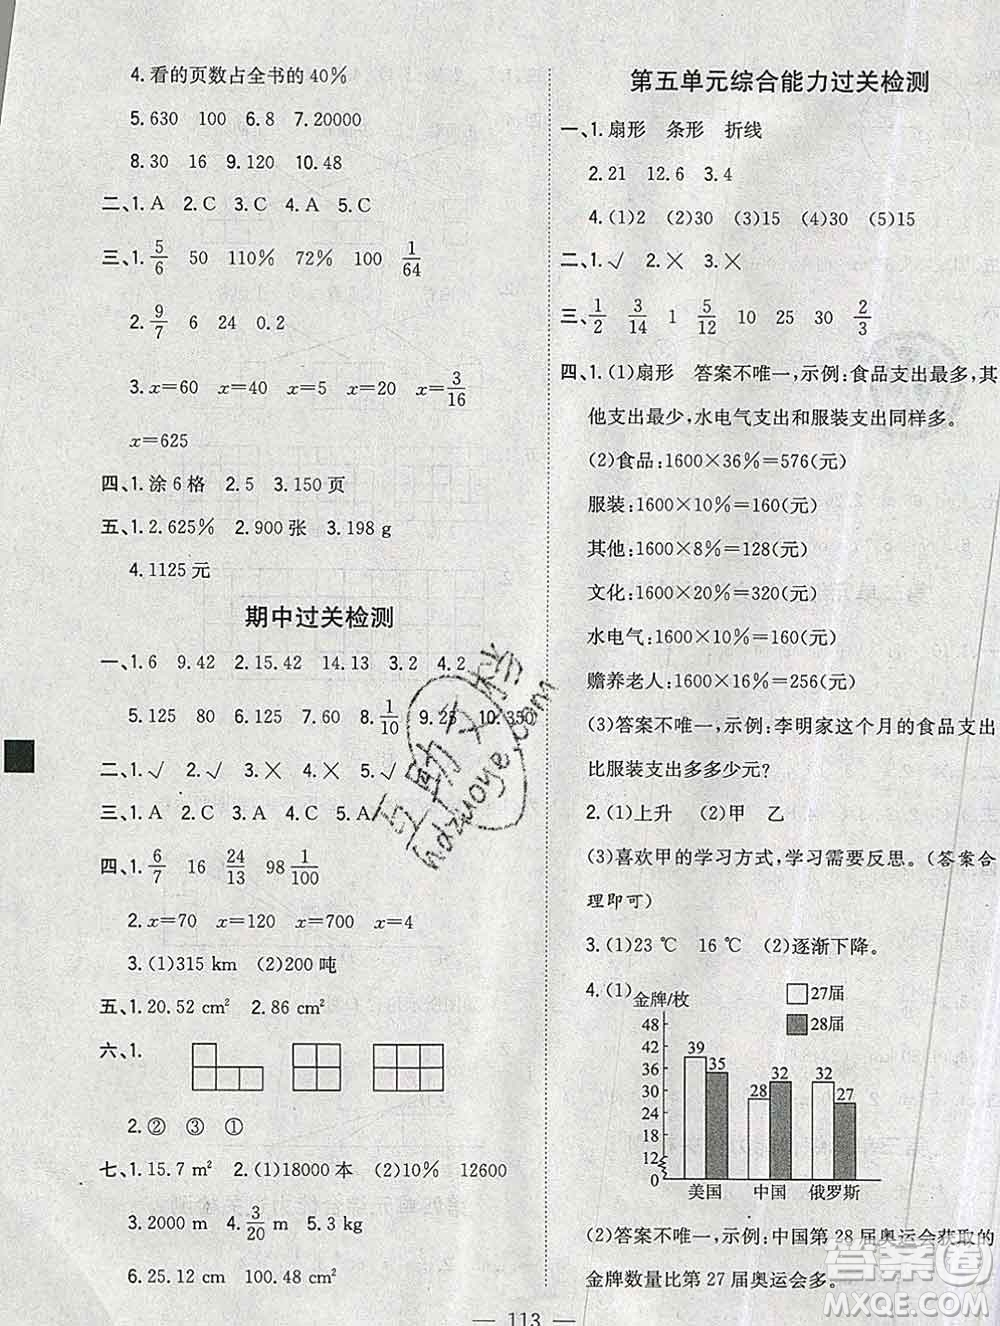 4.看的页数占全书的40%
5.630 100 6.8 7.20000
8.30 16 9.120 10.48
二、1.A 2.C 3.C 4.A 5.C
三、1.5/6 50 110% 72% 100 1/64
2.9/7 6 24 0.2
3.x=60 x=40 x=5 x=20 x=3/16
x=625
四、1.涂6格 2.5 3.150页
五、1.2.625% 2.900张 3.198 g
4.1125元
期中过关检测
一、1.6 9.42 2.15.42 14.13 3.2 4.2
5.125 80 6.125 7.60 8.1/10 9.25 10.350
二、1.√ 2.√ 3.× 4.× 5.√
三、1.A 2.C 3.B 4.C 5.A
四、1.6/7 16 24/13 98 1/100
2.x=70 x=120 x=700 x=4
3.(1)315 km (2)200吨
五、1.20.52 cm² 2.86 cm²
六、1.
2.② ③ ①
七、1.15.7 m² 2.(1)18000本 (2)10% 12600
3.2000 m 4.3/20 m 5.3 kg
6.25.12 cm 100.48 cm²
第五单元综合能力过关检测
一、1.扇形 条形 折线
2.21 12.6 3.4
4.(1)2 (2)30 (3)15 (4)30 (5)15
二、1.√ 2.× 3.×
三、1/2 3/14 1 5/12 10 25 30 2/3
四、1.(1)扇形 答案不唯一,示例:食品支出最多,其
他支出最少,水电气支出和服装支出同样多。
(2)食品:1600×36%=576(元)
服装:1600×10%=160(元)
其他:1600×8%=128(元)
文化:1600×20%=320(元)
水电气:1600×10%=160(元)
赡养老人:1600×16%=256(元)
(3)答案不唯一,示例:李明家这个月的食品支出
比服装支出多多少元?
2.(1)上升 (2)甲 乙
(3)喜欢甲的学习方式,学习需要反思。(答案合
理即可)
3.(1)23 ℃ 16 ℃ (2)逐渐下降。
4.(1)
金牌/枚
27届
28届
48
42
36
30
24
18
12
0
39
35
28
32
32
27
美国 中国 俄罗斯
(2)答案不唯一,示例:中国第28届奥运会获取的
金牌数量比第27届奥运会多。
113
互助文档
hdzuoye.com
答案圈
MXQE.COM